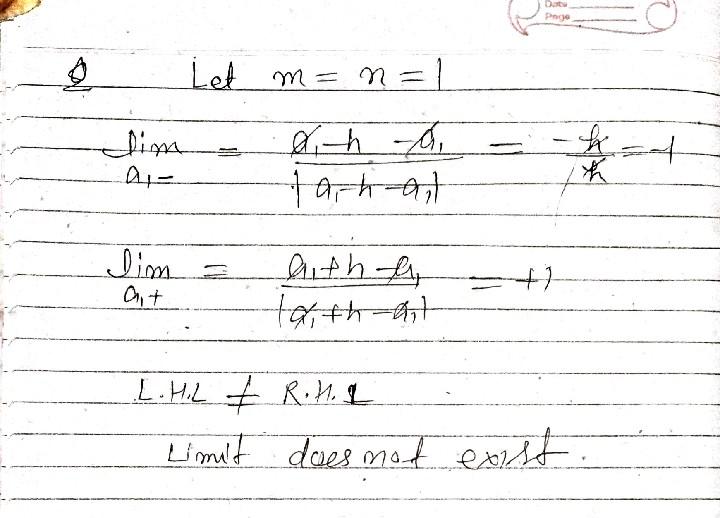 Date
Page
Q Let m = n = 1
lim a₁- = a₁-h-a₁ / |a₁-h-a₁| = -h/h = -1
lim a₁+ = a₁+h-a₁ / |a₁+h-a₁| = +1
L.H.L ≠ R.H.L
Limit does not exist.